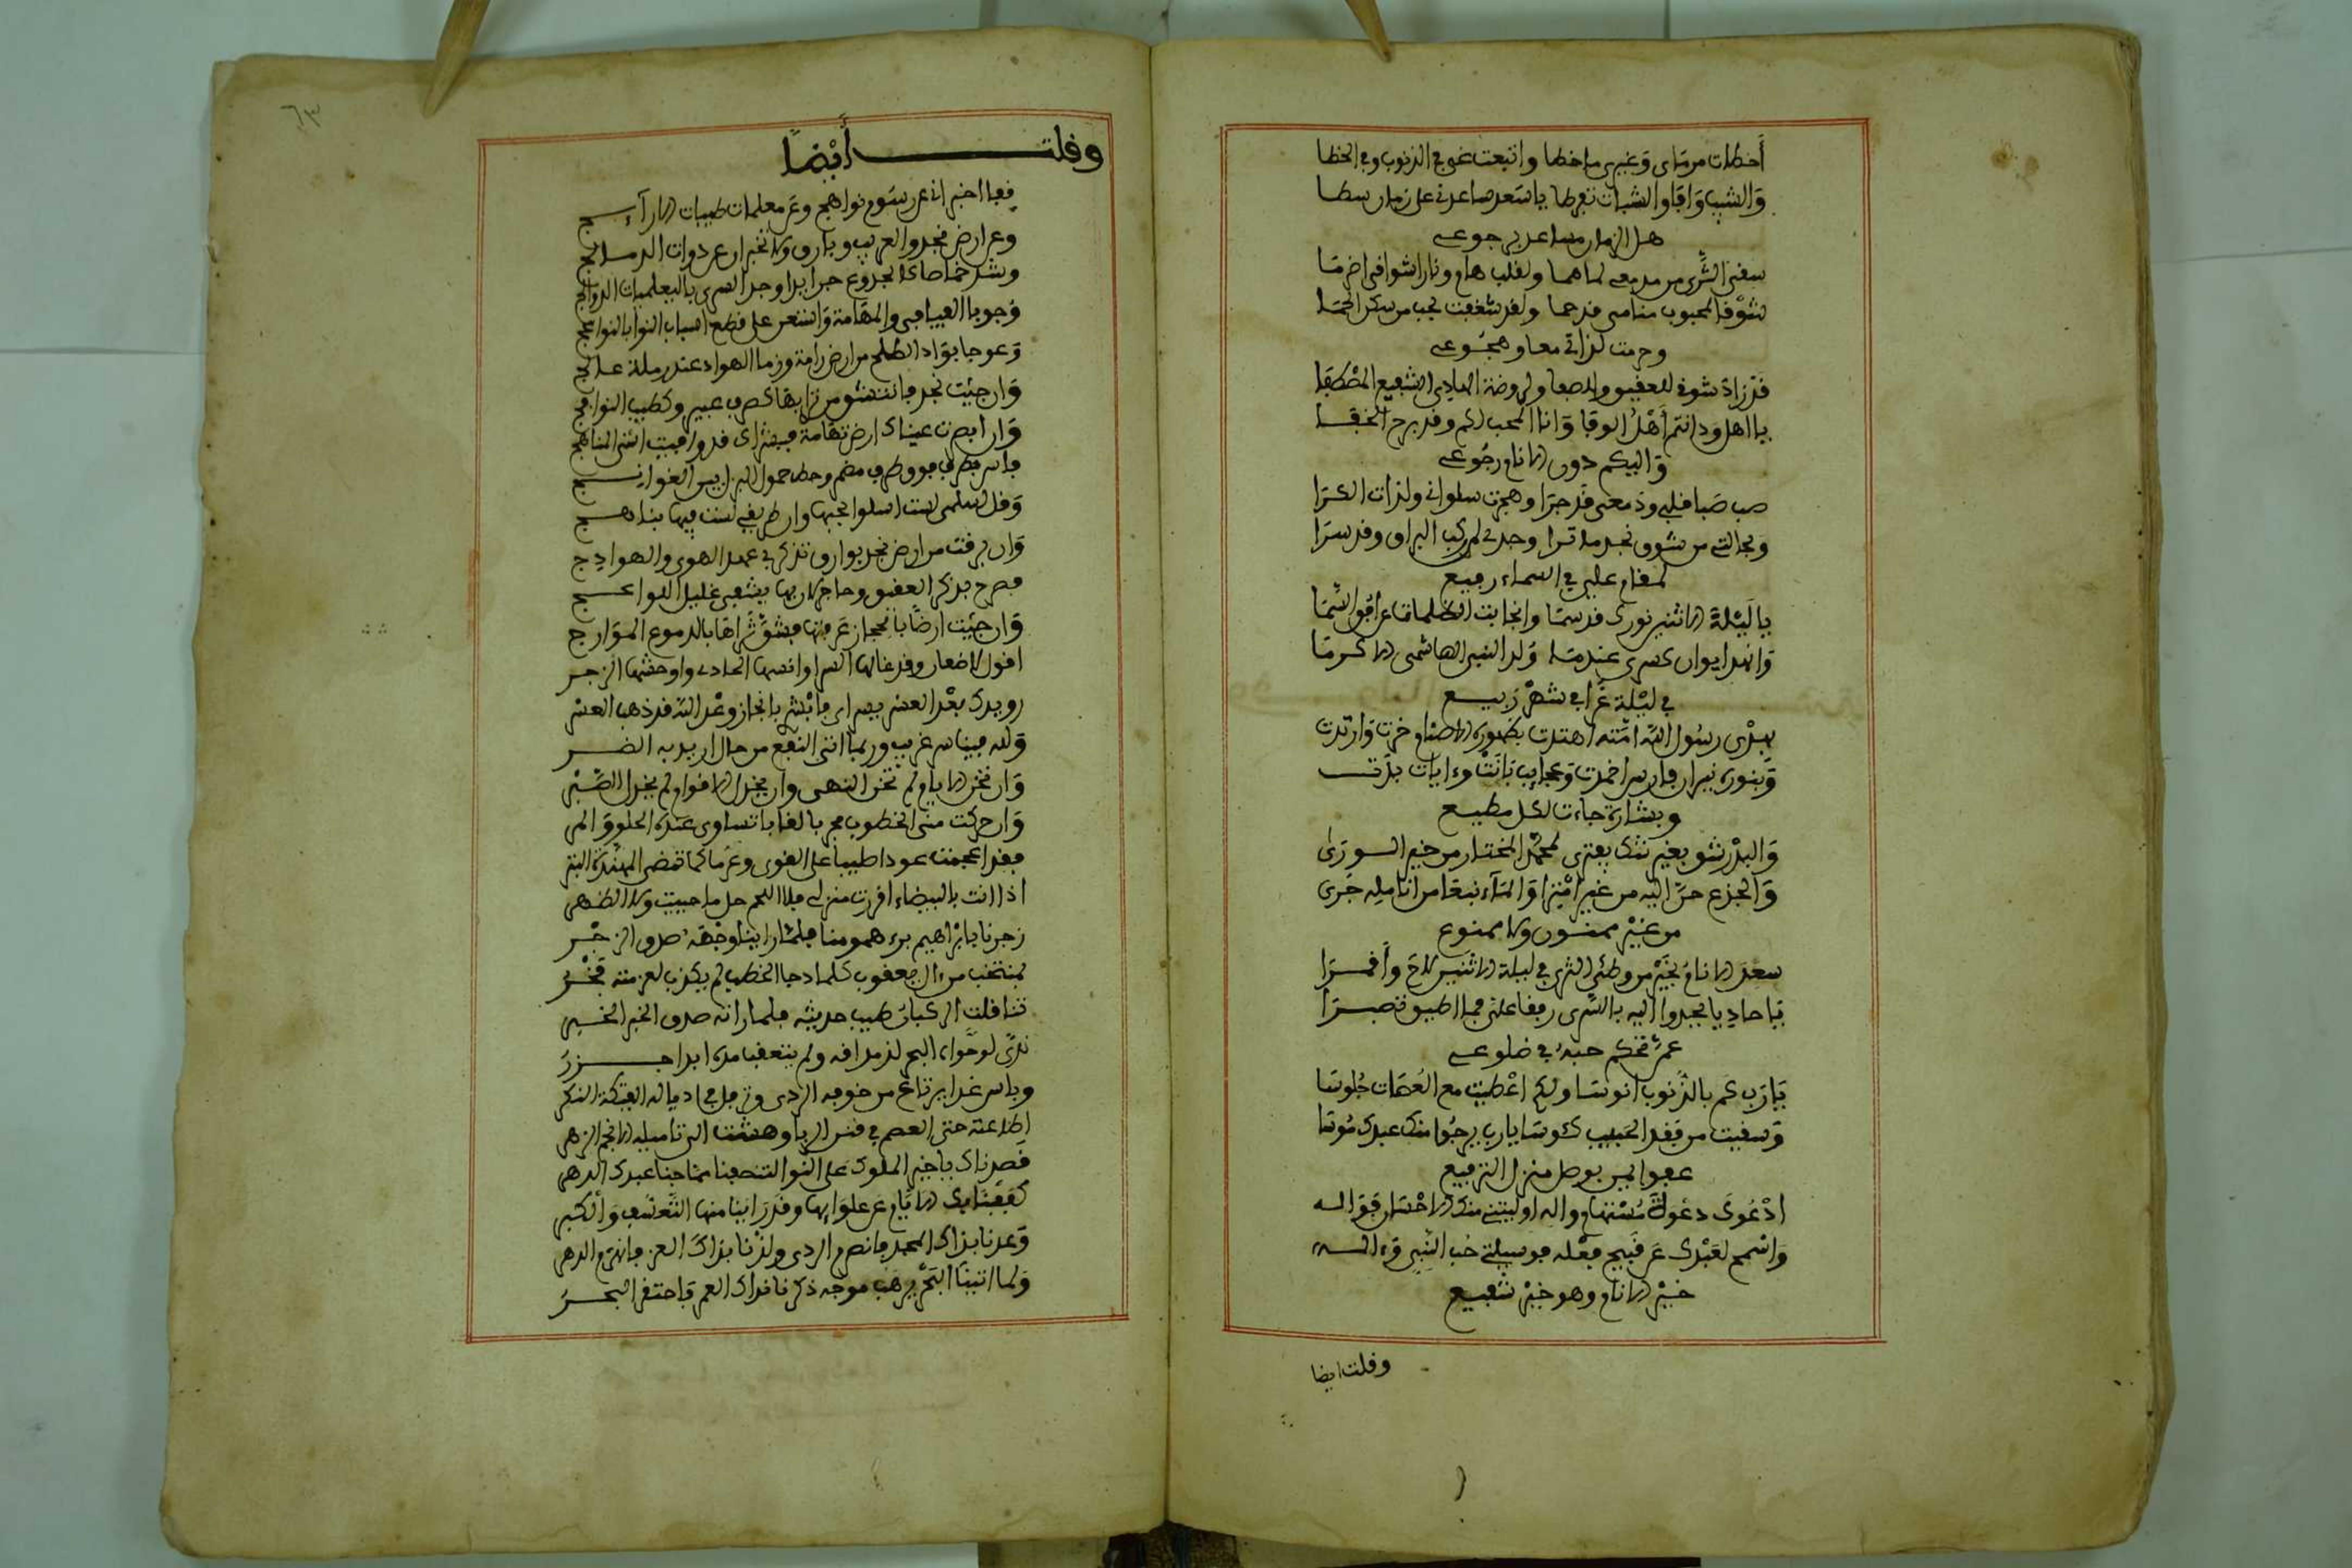 أخطات من مناي وغيري ما خطا واتبعت غيي في الذنوب وفي الخطا
والشيب وافا والشباب تفرطا يا سعد ساعدني على زمان سطا
هل الزمان مساعد برجوعي
سفني الثرى من مدمعي لما هما ولقلب هام ونار اشواقي اضرما
شوقا لمحبوب منامي قد حما ولقد شغفت بحب من سكن الحما
وحرمت لذاتي معا وهجوعي
قد زاد شوقي للعقيق وللصفا ولروضة الهادي الشفيع المصطفا
يا اهل ودي انتم أهل الوفا وانا المحب لكم وقد برح الخفا
واليكم دون الانام رجوعي
صب صبا قلبي ودمعي قد جرا وهجرت سلواني ولذات الكرا
وبحالتي من شوق نجد ما ترا وجدي لمن ركب البراق وقد سرا
لمقام علي في السماء رفيع
يا ليلة الاثنين نورك قد سما وانجابت الظلمات عن افق السما
وانهد ايوان كسرى عندما ولد النبي الهاشمي الاكرما
في ليلة غرا في شهر ربيع
بهدى رسول الله امته اهتدت بظهوره الاصنام خرت وارتدت
وبنوره نيران فارس اخمدت وعجايب بانت وءايات بدت
وبشارة جاءت لكل مطيع
والبدر شق بغير شك يفترى لمحمد المختار من خير الورى
والجذع حن اليه من غير امترا والماء نبعا من انامله جرى
من غير ممنون ولا ممنوع
سعد الانام بخير من وطئ الثرى في ليلة الاثنين لاح وأقمرا
يا حاديا يحدوا اليه بالسرى رفقا علي فما اطيق تصبرا
عمن تحكم حبه في ضلوعي
يا رب كم بالذنوب انوسا ولكم اعطيت مع العصات جلوسا
وسقيت من فقد الحبيب كئوسا يا رب يرجوا منك عبدك موسا
عفوا لمن بوصل منزل الترفيع
ادعوك دعوة مستهام واله اوليتني منك الاحسان فواله
واسمح لعبدك عن قبيح فعله فوسيلتي حب النبي وءاله
خير الانام وهو خير شفيع
وقلت ايضا
وقلت أيضا
قفا اخبراني عن رسوم نواهج وعن معلمات طيبات الارآيج
وعن ارض نجد والعريب وبارق ولا تخبراني عن ذوات الدمالج
وجوبا الفيافي والمهامة واسعر على قطع اسباب النوا بالنواعج
وعوجا بوادي الطلح من ارض رامة وزما الهوادي عند رملة عالج
وان جئت نجد فانتشق من ترابها كصرف عبير وكطيب النوافج
وان ابصرت عيناك ارض تهامة فبشراك قد وافيت اسنى المناهج
وقل لسلمى لست اسلوا بحبها وان طريقي لست فيها بناهج
وان برقت من ارض نجد بوارق تذكرني عهد الهوى والهوادج
فصرح بذكر العقيق وحاجر لان بها يشفى غليل اللواعج
وان جئت ارضا بالحجاز عرفتها فشق ثراها بالدموع الموارج
اقول لاضعان وقد غالها السرا واقصها الحادي واوحشها الزجر
رويدك بعد العسر يسران فابشر بانجاز وعد الله قد ذهب العسر
ولله فينا سر غريب وربما اتى النفع من حال اريد به الضر
وان تخن الايام لم تخن النهى وان يخذل الاقوام لم يخذل الصبر
وان حركت منى الخطوب مجربا لقا باتساوى عنده الحلو والمر
فقد اعجمت عودا صليبا على القوى وعزما كما تمضي المهندة البتر
اذا انت بالبيضاء اقررت منزلي فلا اللحم حل ما حييت ولا الظهر
زجرنا بابراهيم برء همومنا فلما راينا وجهه صدق الزجر
بمنتخب من ءال يعقوب كلما دجا الخطب لم يكذب لعزمته فجر
تناقلت الركبان طيب حديثه فلما راته صدق الخبر الخبر
ندى لو حواه البحر لذ مذاقه ولم يتعقب مده ابدا جزر
وباس غدا يرتاع من خوفه الردى وترفل في اذياله الفتكة البكر
اطاعته حتى العصم في قنن الربا وهشت الى تاميله الانجم الزهر
قصدناك يا خير الملوك على النوا لتنصفنا مما جنا عبدك الدهر
كففنا بك الايام عن علوايها وقد راينا منها التعسف والكبر
وعدنا بذاك المجد فانصرم الردى ولذنا بذاك العز فانهزم الدهر
ولما اتينا البحر يرهب موجه ذكرنا نداك الغمر فاحتقر البحر